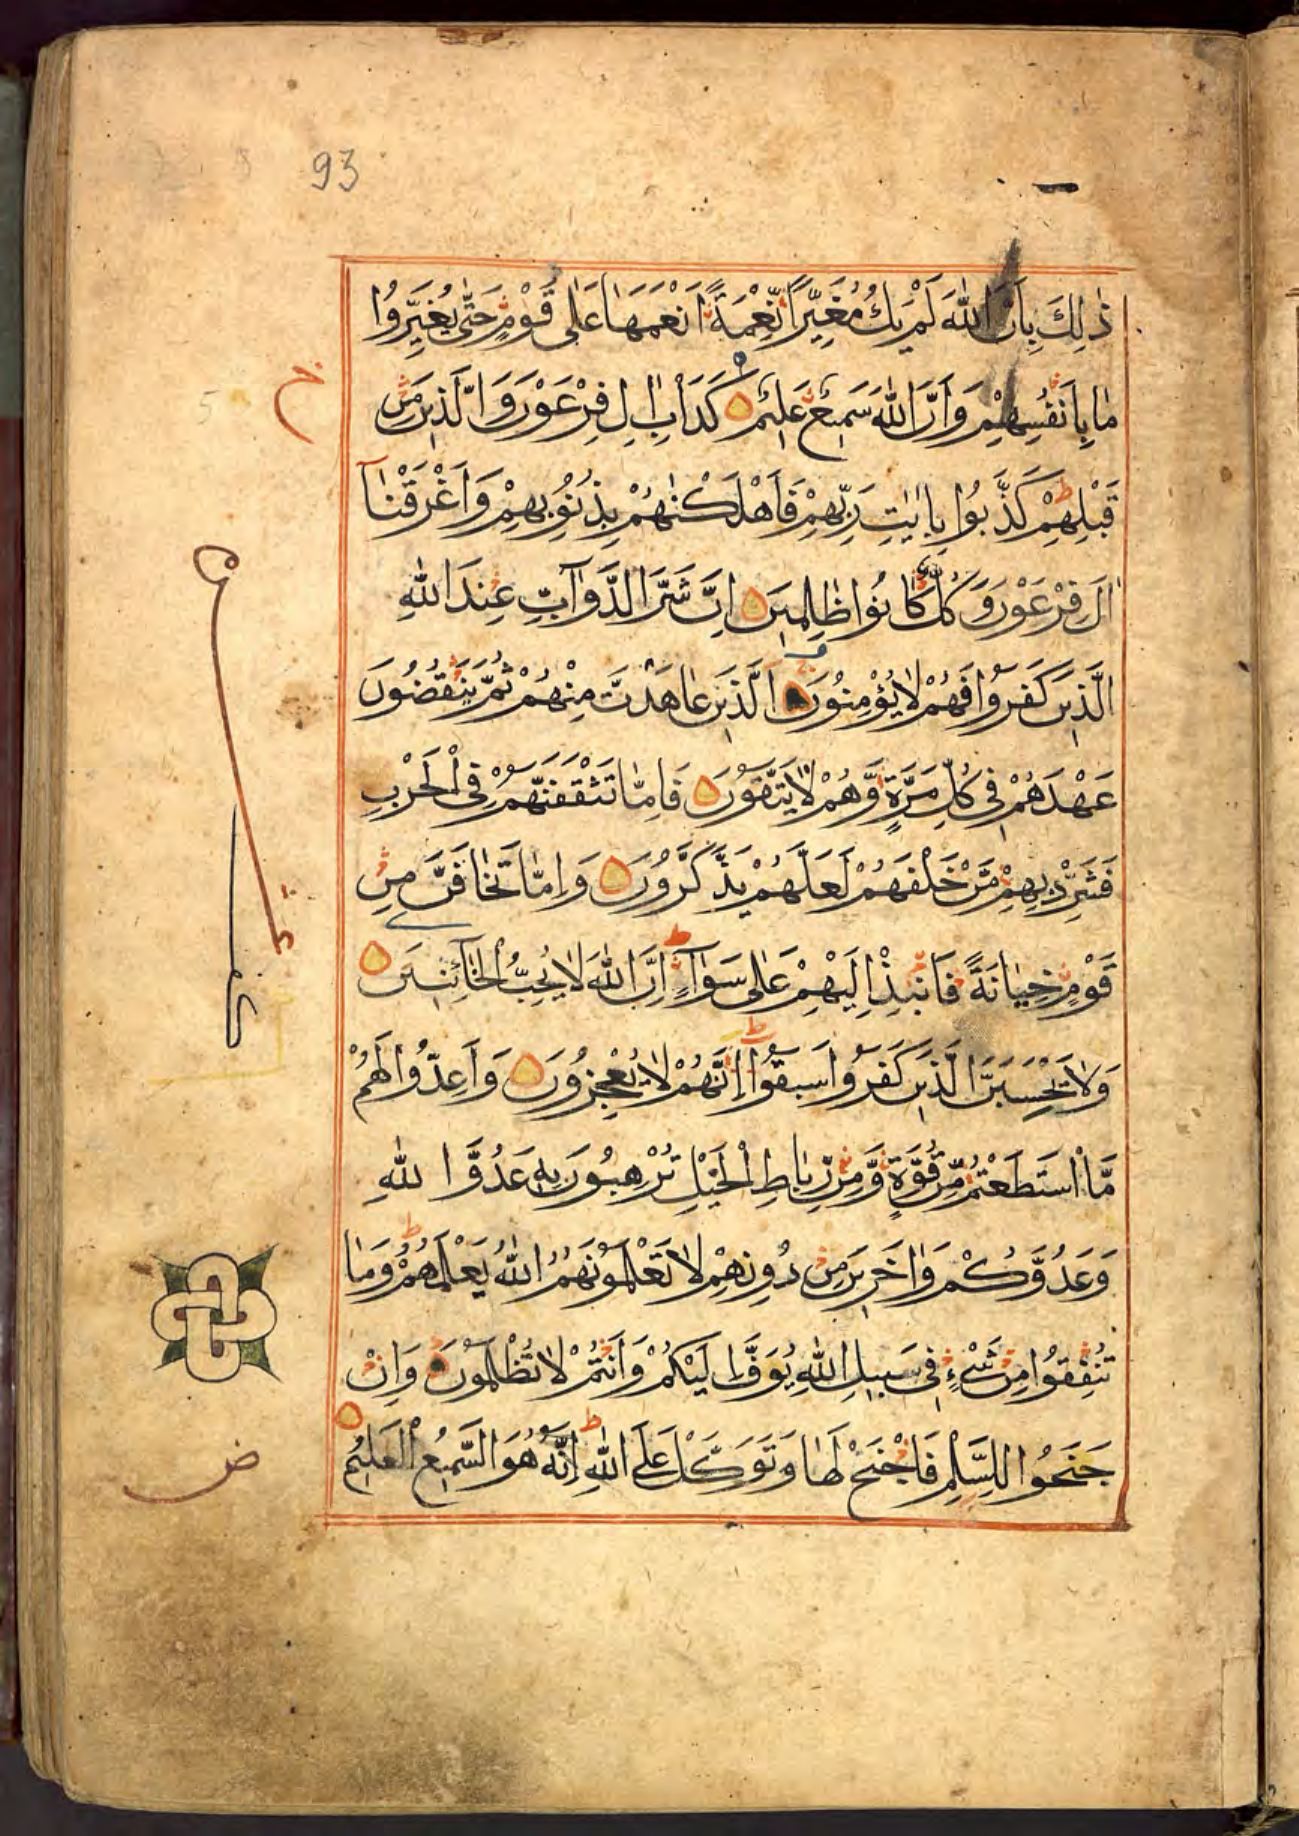 93
ذٰلِكَ بِاَنَّ اللّٰهَ لَمْ يَكُ مُغَيِّرًا نِّعْمَةً اَنْعَمَهَا عَلٰى قَوْمٍ حَتّٰى يُغَيِّرُوْا
مَا بِاَنْفُسِهِمْ وَاَنَّ اللّٰهَ سَمِيْعٌ عَلِيْمٌ كَدَاْبِ اٰلِ فِرْعَوْنَ وَالَّذِيْنَ مِنْ
قَبْلِهِمْ كَذَّبُوْا بِاٰيٰتِ رَبِّهِمْ فَاَهْلَكْنٰهُمْ بِذُنُوْبِهِمْ وَاَغْرَقْنَآ
اٰلَ فِرْعَوْنَ وَكُلٌّ كَانُوْا ظَالِمِيْنَ اِنَّ شَرَّ الدَّوَآبِّ عِنْدَ اللّٰهِ
الَّذِيْنَ كَفَرُوْا فَهُمْ لَا يُؤْمِنُوْنَ اَلَّذِيْنَ عَاهَدْتَّ مِنْهُمْ ثُمَّ يَنْقُضُوْنَ
عَهْدَهُمْ فِيْ كُلِّ مَرَّةٍ وَّهُمْ لَا يَتَّقُوْنَ فَاِمَّا تَثْقَفَنَّهُمْ فِى الْحَرْبِ
فَشَرِّدْ بِهِمْ مَّنْ خَلْفَهُمْ لَعَلَّهُمْ يَذَّكَّرُوْنَ وَاِمَّا تَخَافَنَّ مِنْ
قَوْمٍ خِيَانَةً فَانْبِذْ اِلَيْهِمْ عَلٰى سَوَآءٍ اِنَّ اللّٰهَ لَا يُحِبُّ الْخَآئِنِيْنَ
وَلَا تَحْسَبَنَّ الَّذِيْنَ كَفَرُوْا سَبَقُوْا اِنَّهُمْ لَا يُعْجِزُوْنَ وَاَعِدُّوْا لَهُمْ
مَّا اسْتَطَعْتُمْ مِّنْ قُوَّةٍ وَّمِنْ رِّبَاطِ الْخَيْلِ تُرْهِبُوْنَ بِهٖ عَدُوَّ اللّٰهِ
وَعَدُوَّكُمْ وَاٰخَرِيْنَ مِنْ دُوْنِهِمْ لَا تَعْلَمُوْنَهُمْ اَللّٰهُ يَعْلَمُهُمْ وَمَا
تُنْفِقُوْا مِنْ شَيْءٍ فِيْ سَبِيْلِ اللّٰهِ يُوَفَّ اِلَيْكُمْ وَاَنْتُمْ لَا تُظْلَمُوْنَ وَاِنْ
جَنَحُوْا لِلسَّلْمِ فَاجْنَحْ لَهَا وَتَوَكَّلْ عَلَى اللّٰهِ اِنَّهٗ هُوَ السَّمِيْعُ الْعَلِيْمُ